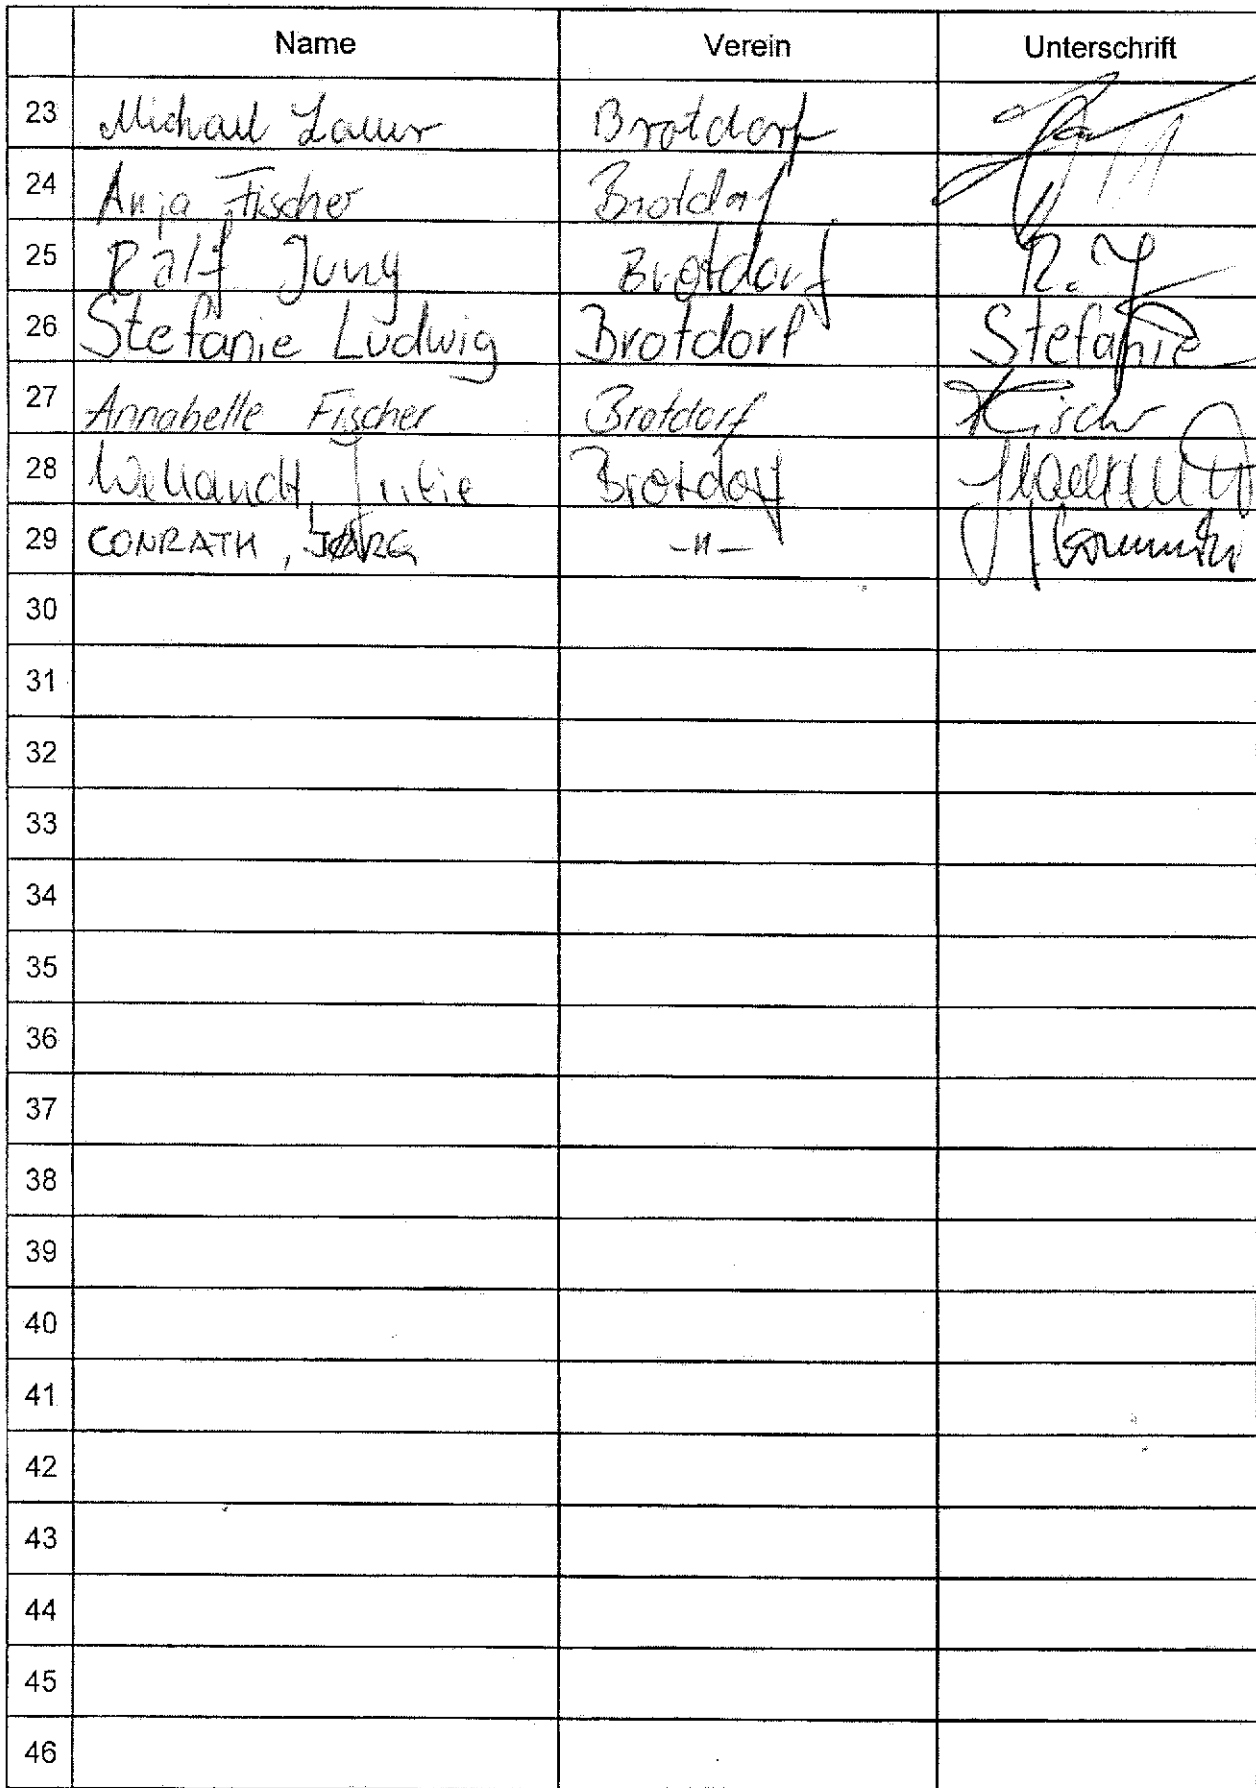 Name Verein Unterschrift
23 Michael Lauer Brotdorf
24 Anja Fischer Brotdorf
25 Ralf Jung Brotdorf R. J
26 Stefanie Ludwig Brotdorf Stefanie
27 Annabelle Fischer Brotdorf Fischer
28 Brotdorf
29 CONRATH, JÖRG -"-
30
31
32
33
34
35
36
37
38
39
40
41
42
43
44
45
46